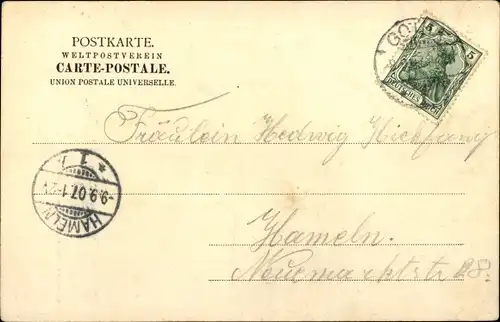 POSTKARTE.
WELTPOSTVEREIN
CARTE-POSTALE.
UNION POSTALE UNIVERSELLE.
5 5
DEUTSCHES REICH
Fräulein Hedwig
Hameln.
Neuemarktstr 28.
HAMELN
-9.9.07.1-2
* 1